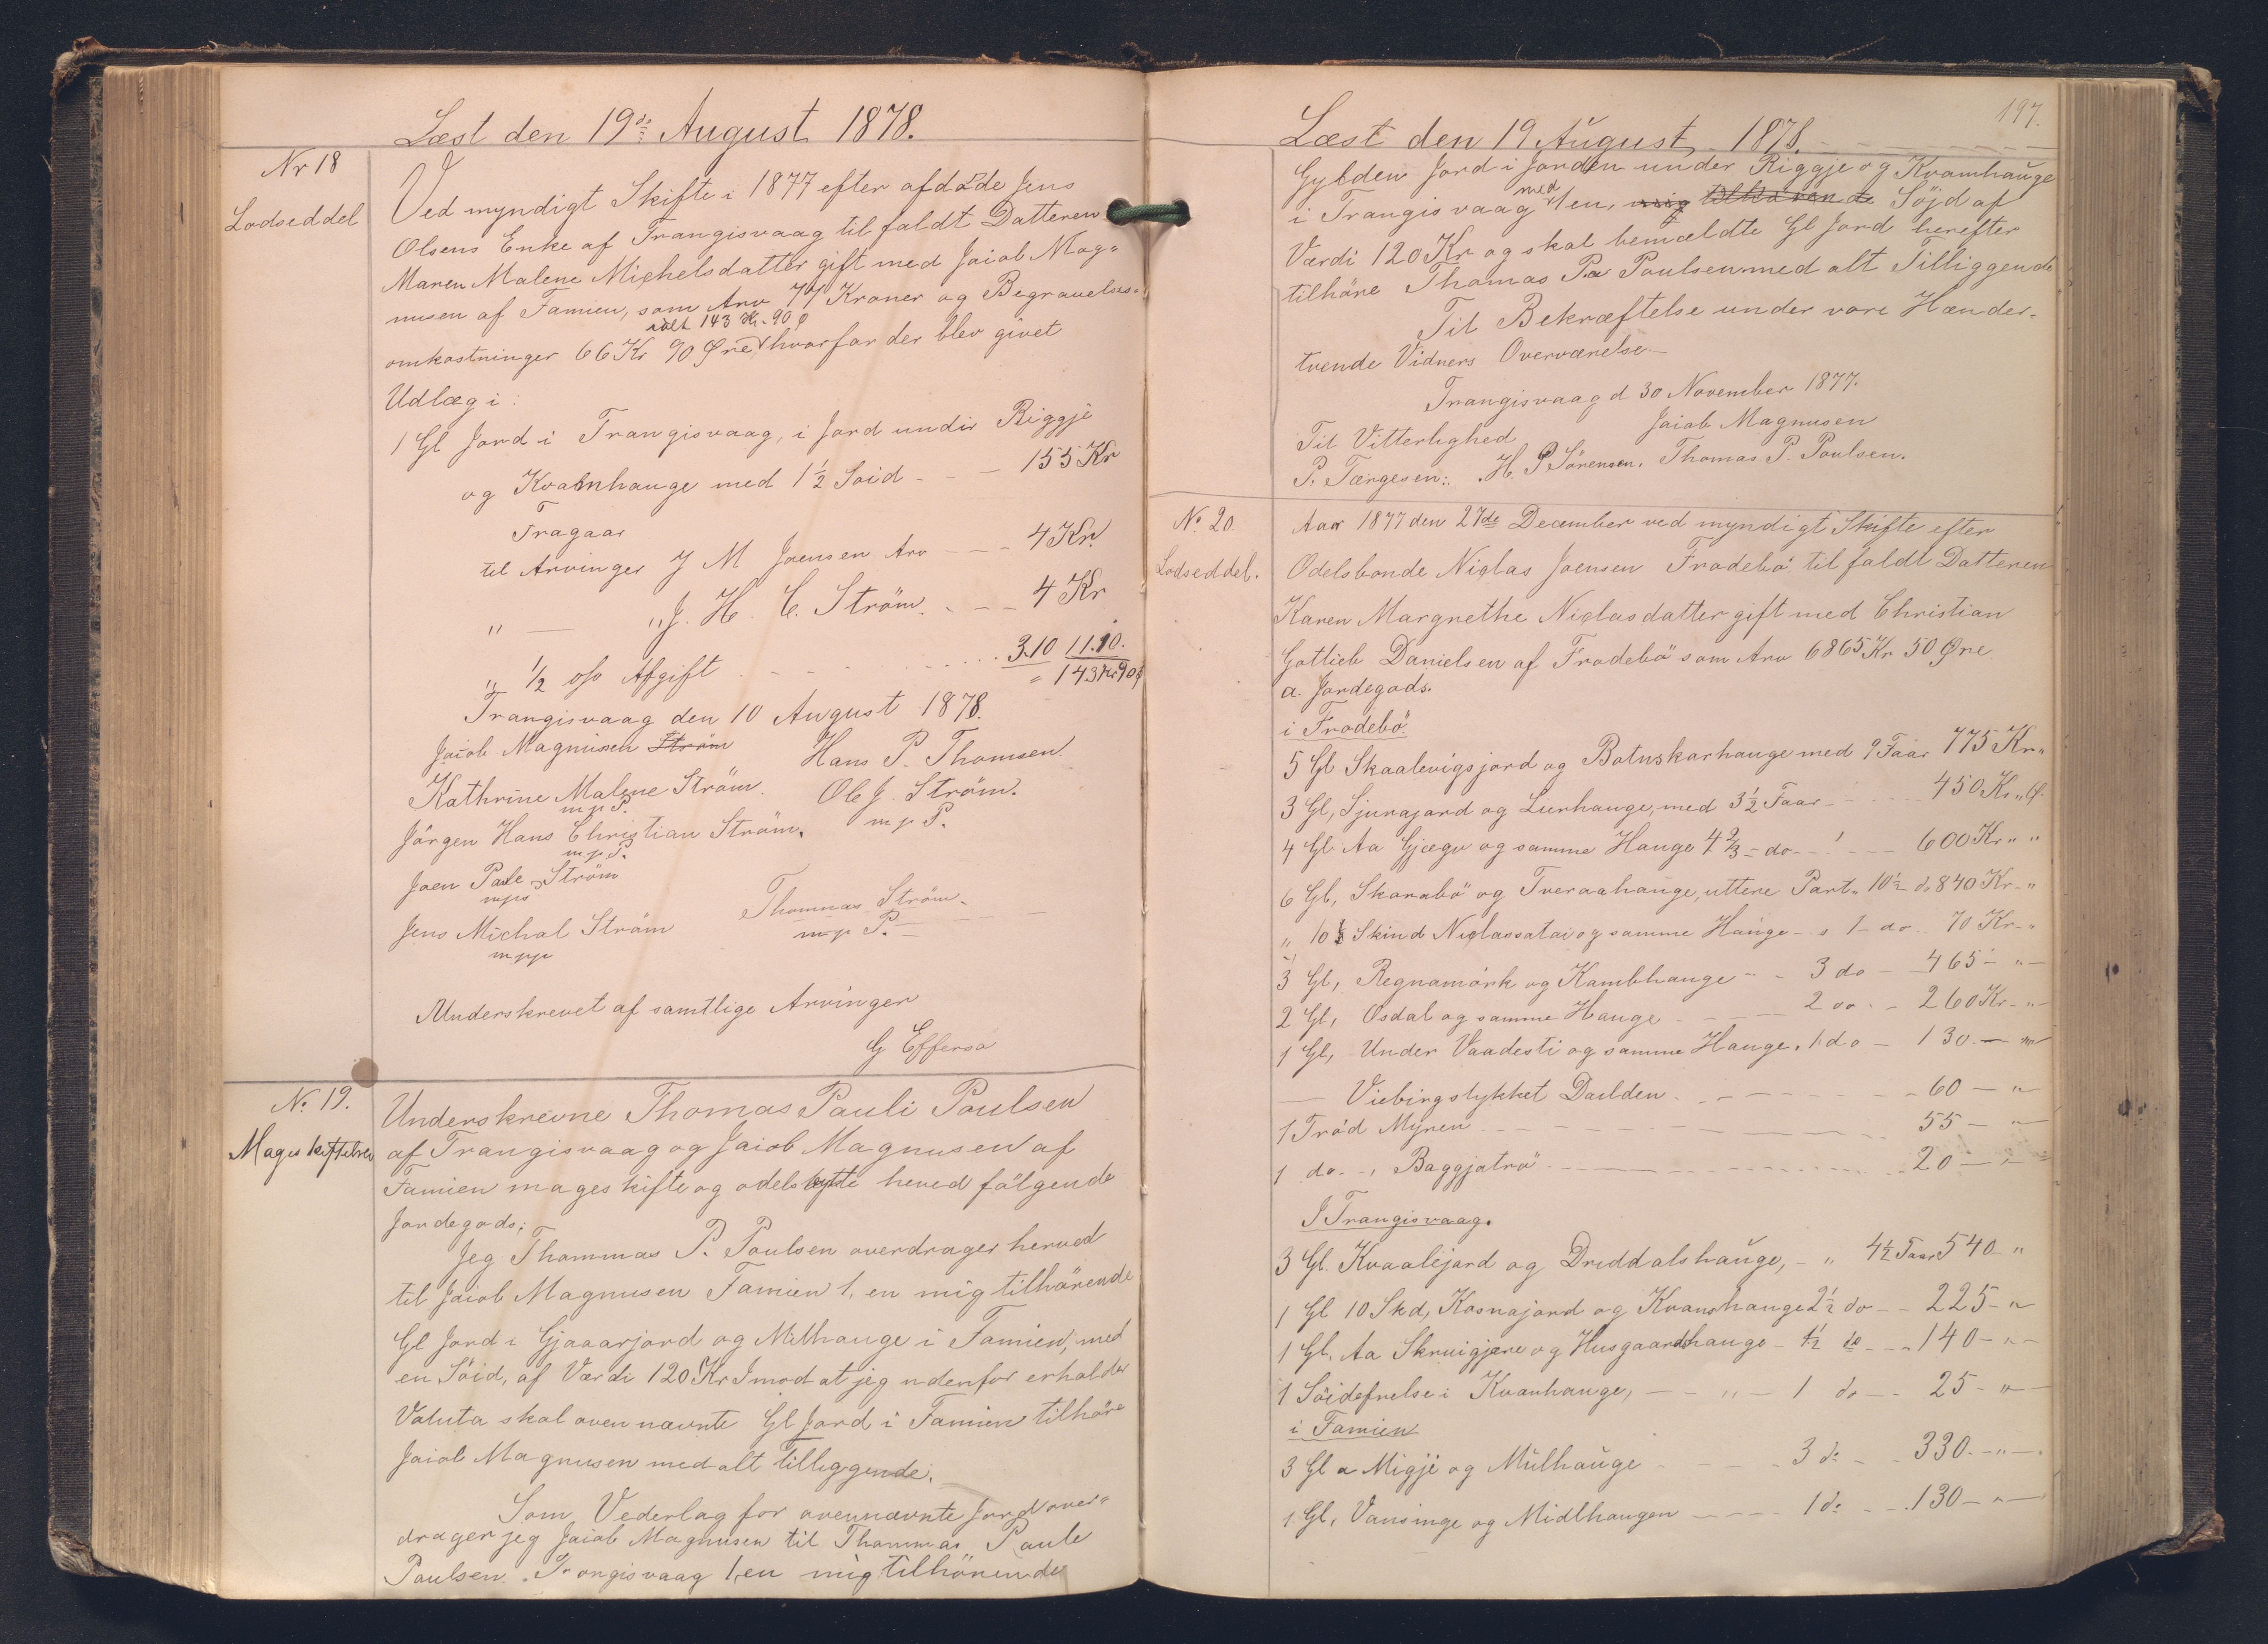 Læst den 19de August 1878.
Nr 18
Lodseddel
Ved myndigt Skifte i 1877 efter afdøde Jens
Olsens Enke af Trangisvaag til faldt Datteren
Maren Malene Michelsdatter gift med Jaiob Mag=
nusen af Famien, som Arv 77 Kroner og Begravelses=
ialt 143 Kr. 90 Ø
omkostninger 66 Kr 90 Øre hvorfor der blev givet
Udlæg i:
1 Gl Jord i Trangisvaag, i Jord undir Riggje
og Kvanhauge med 1½ Soid - - - 155 Kr
Fragaar
til Arvinger J M Joensen Arv - - - 4 Kr.
" — " J. H. C. Ström. - - - 4 Kr
" ½ o/o Afgift - - - 3.10 11.10.
= 143 Kr 90 Ø
Trangisvaag den 10 August 1878.
Jaiob Magnusen Ström Hans P. Thomsen.
Kathrine Malene Ström. Ole J. Ström.
m p P. m p P.
Jörgen Hans Christian Ström.
m p P.
Joen Pale Ström
mpp
Jens Michal Ström Thommas Ström.
mpp m p P.
Underskrevet af samtlige Arvinger
G Effersø
No. 19.
Mageskiftebrev
Underskrevne Thomas Pauli Poulsen
af Trangisvaag og Jaiob Magnusen af
Famien mageskifte og odelsbytte herved fölgende
Jordegods:
Jeg Thommas P. Poulsen overdrager herved
til Jaiob Magnusen Famien 1, en mig tilhörende
Gl Jord i Gjaaarjord og Milhauge i Famien, med
en Söid, af Værdi 120 Kr Imod at jeg udenfor erholder
Valuta skal oven nævnte Gl Jord i Famien tilhöre
Jaiob Magnusen med alt tilliggende.
Som Vederlag for ovennævnte Jord over=
drager jeg Jaiob Magnusen til Thommas Paule
Poulsen Trongisvaag 1, en mig tilhörende
197.
Læst den 19 August 1878.
Gylden Jord i Jorden under Riggje og Kvamhauge
med
i Trangisvaag 1 en, mig tilhörende Söjd af
Værdi 120 Kr og skal bemældte Gl Jord herefter
tilhöre Thomas Pa Poulsen med alt Tilliggende
Til Bekræftelse under vore Hænder.
tvende Vidners Overværelse.—
Trangisvaag d 30 November 1877.
Til Vitterlighed Jaiob Magnusen
P. Tærgesen: H. P Sörensen. Thomas P. Poulsen.
No. 20.
Lodseddel.
Aar 1877 den 27de December ved myndigt Skifte efter
Odelsbonde Niglas Joensen Frodebö til faldt Datteren
Karen Margrethe Niglasdatter gift med Christian
Gotlieb Danielsen af Frodebö som Arv 6865 Kr 50 Øre
a. Jordegods.
i Frodebö.
5 Gl Skaalevigsjord og Botnskarhauge med 9 Faar 775 Kr "
3 Gl, Sjurajord og Lurhauge, med 3½ Faar - - - 450 Kr " Ø.
4 Gl Aa Gjægv og samme Hauge 4⅔ - do - - - 600 Kr " "
6 Gl, Skarabö og Tveraahauge, uttere Part " 10½ do 840 Kr - "
" 10 Skind Niglassatai og samme Hauge - " 1 - do - 70 Kr - "
3 Gl, Regnamörk og Kambhauge - - 3 do - 465 - " -
2 Gl, Osdal og samme Hauge - - - 2 do - - 260 Kr - " -
1 Gl, Under Vaadesti og samme Hauge. 1 do - 130 - "
— Viebingstykket Daulden - - - 60 — "
1 Tröd Myren - - - 55 - "
1 do - , Baggjatrö - - - 20 - " -
I Trangisvaag.
3 Gl. Kvaalejord og Driddalshauge, - " 4½ Faar 540 "
1 Gl 10 Skd, Kosnajord og Kvanhauge 2½ do - - 225 - "
1 Gl. Aa Skruigjære og Husgaardshauge - 1½ do - - - 140 - " -
1 Söidefrelse i Kvanhauge, - - " - 1 do - - 25 - " -
i Famien
3 Gl a Migje og Mulhauge - - - 3 do - - 330 - " -
1 Gl, Vansinge og Midlhaugen - - - 1 do - - 130 - " -